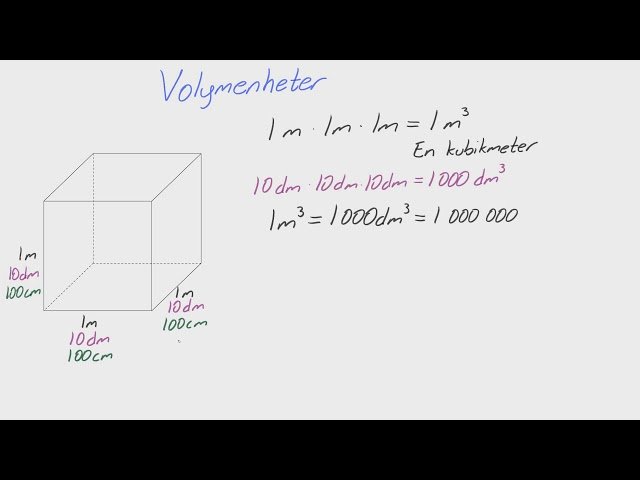 Volymenheter
1m · 1m · 1m = 1m³
En kubikmeter
10dm · 10dm · 10dm = 1000 dm³
1m³ = 1000dm³ = 1 000 000
1m
10dm
100cm
1m
10dm
100cm
1m
10dm
100cm